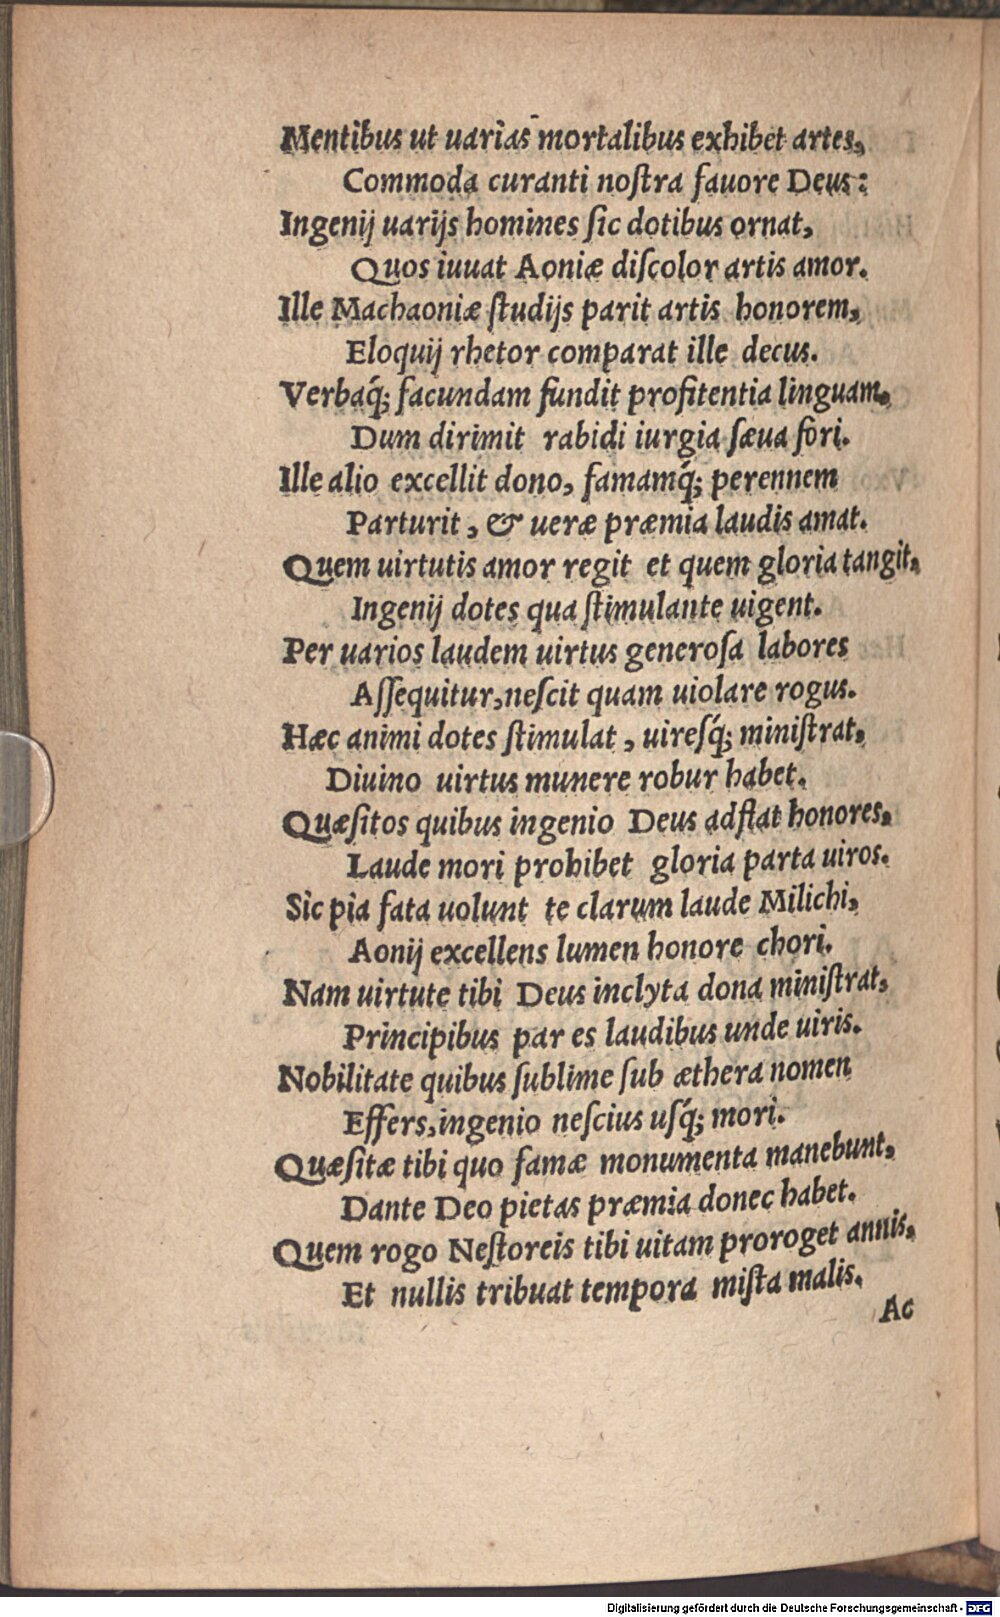 Mentibus ut uarias mortalibus exhibet artes,
Commoda curanti noſtra fauore Deus:
Ingenij uarijs homines ſic dotibus ornat,
Quos iuuat Aoniæ diſcolor artis amor.
Ille Machaoniæ ſtudijs parit artis honorem,
Eloquij rhetor comparat ille decus.
Verbaq́; facundam fundit profitentia linguam,
Dum dirimit rabidi iurgia ſæua fori.
Ille alio excellit dono, famamq́; perennem
Parturit, & ueræ præmia laudis amat.
Quem uirtutis amor regit et quem gloria tangit,
Ingenij dotes qua ſtimulante uigent.
Per uarios laudem uirtus generoſa labores
Aſſequitur, neſcit quam uiolare rogus.
Hæc animi dotes ſtimulat, uireſq́; miniſtrat,
Diuino uirtus munere robur habet.
Quæſitos quibus ingenio Deus adſtat honores,
Laude mori prohibet gloria parta uiros.
Sic pia fata uolunt te clarum laude Milichi,
Aonij excellens lumen honore chori.
Nam uirtute tibi Deus inclyta dona miniſtrat,
Principibus par es laudibus unde uiris.
Nobilitate quibus ſublime ſub æthera nomen
Effers, ingenio neſcius uſq́; mori.
Quæſitæ tibi quo famæ monumenta manebunt,
Dante Deo pietas præmia donec habet.
Quem rogo Neſtoreis tibi uitam proroget annis,
Et nullis tribuat tempora miſta malis.
Ac
Digitalisierung gefördert durch die Deutsche Forschungsgemeinschaft - DFG